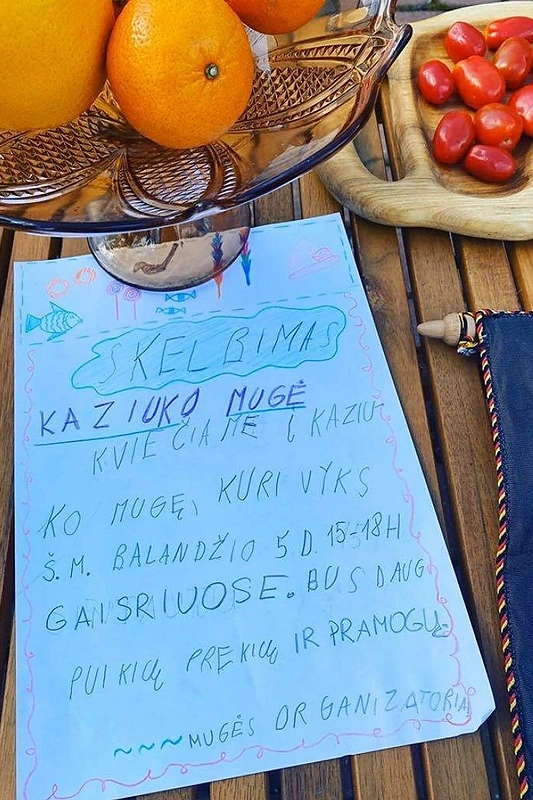 SKELBIMAS
KAZIUKO MUGĖ
KVIEČIAME Į KAZIU-
KO MUGĘ, KURI VYKS
Š.M. BALANDŽIO 5 D. 15-18H
GAISRIUOSE. BUS DAUG
PUIKIŲ PREKIŲ IR PRAMOGŲ
~~~MUGĖS ORGANIZATORIAI